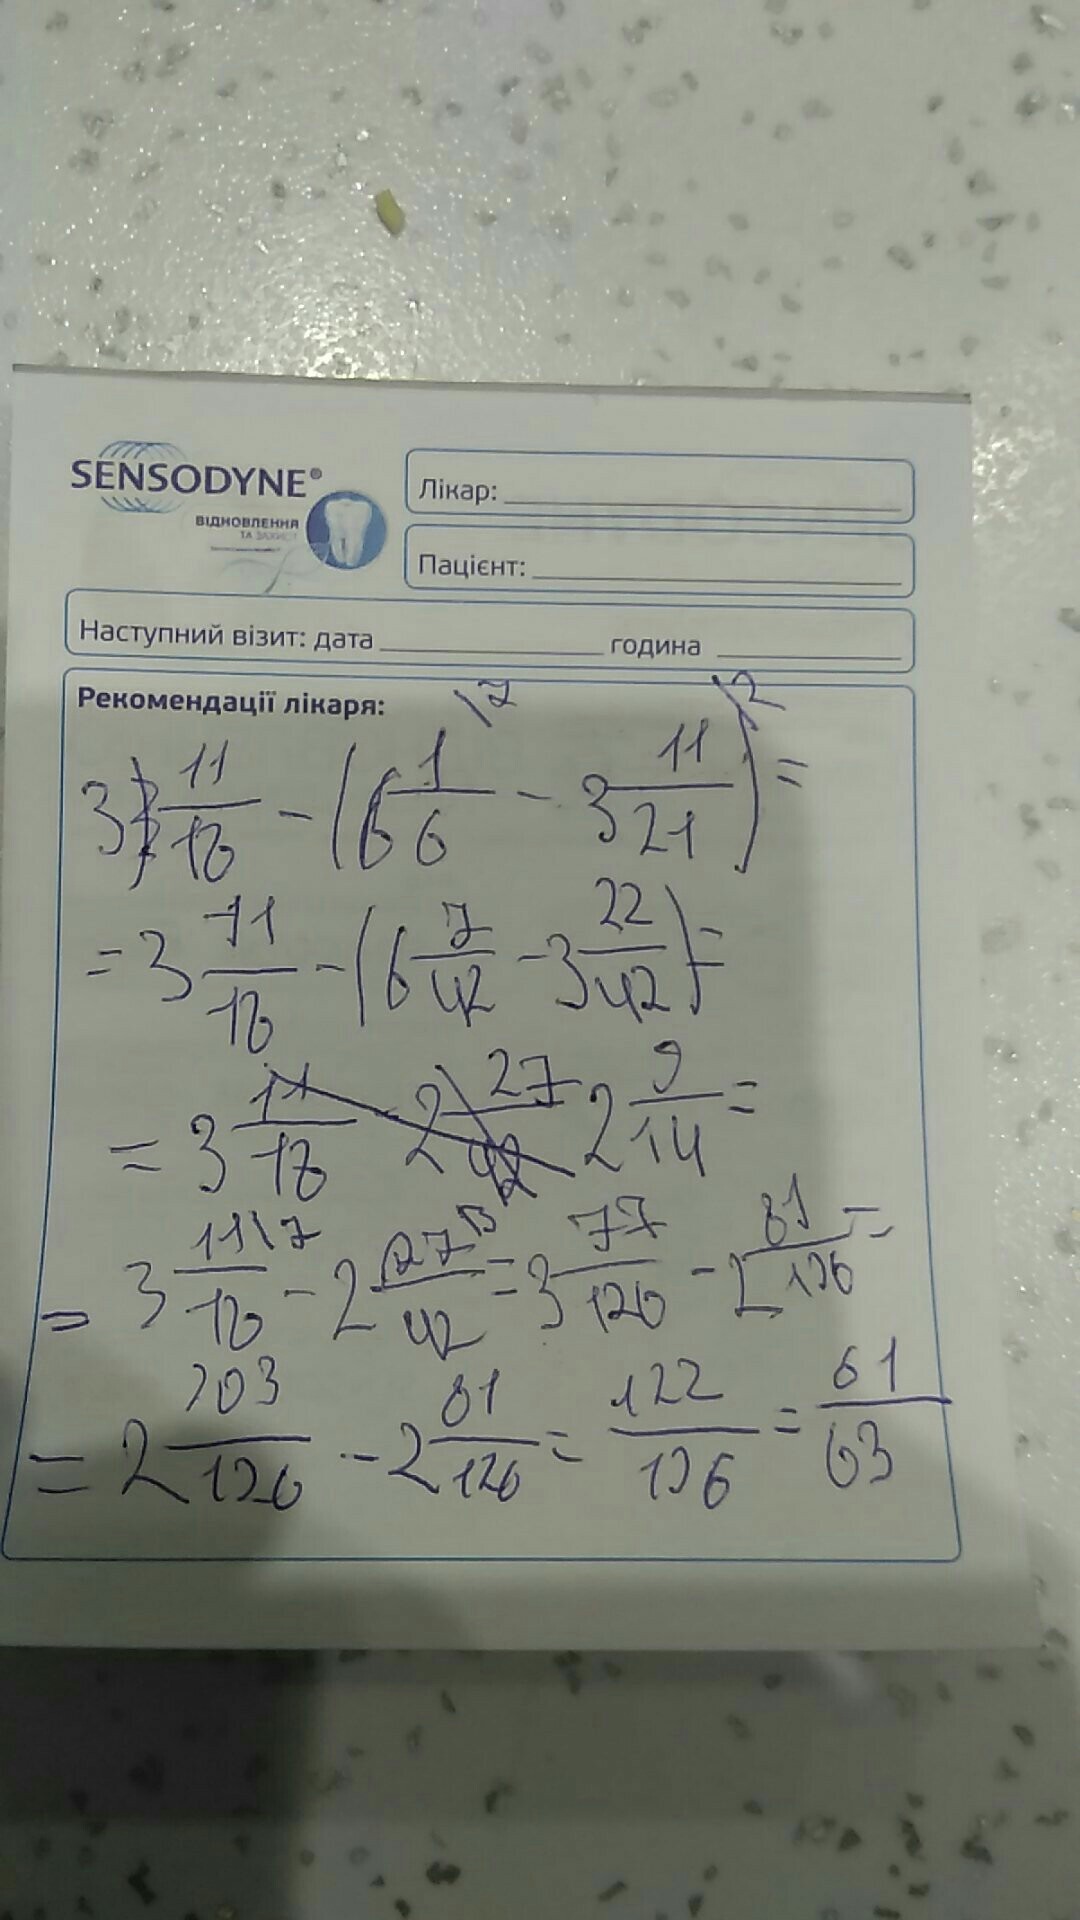 SENSODYNE®
ВІДНОВЛЕННЯ
ТА ЗАХИСТ
Лікар:
Пацієнт:
Наступний візит: дата година
Рекомендації лікаря:
3 11/18 - (6 1/6 \7 - 3 11/21 \2) =
= 3 11/18 - (6 7/42 - 3 22/42) =
= 3 11/18 - 2 27/42 2 9/14 =
= 3 11\7/18 - 2 27\3/42 = 3 77/126 - 2 81/126 =
= 2 203/126 - 2 81/126 = 122/126 = 61/63